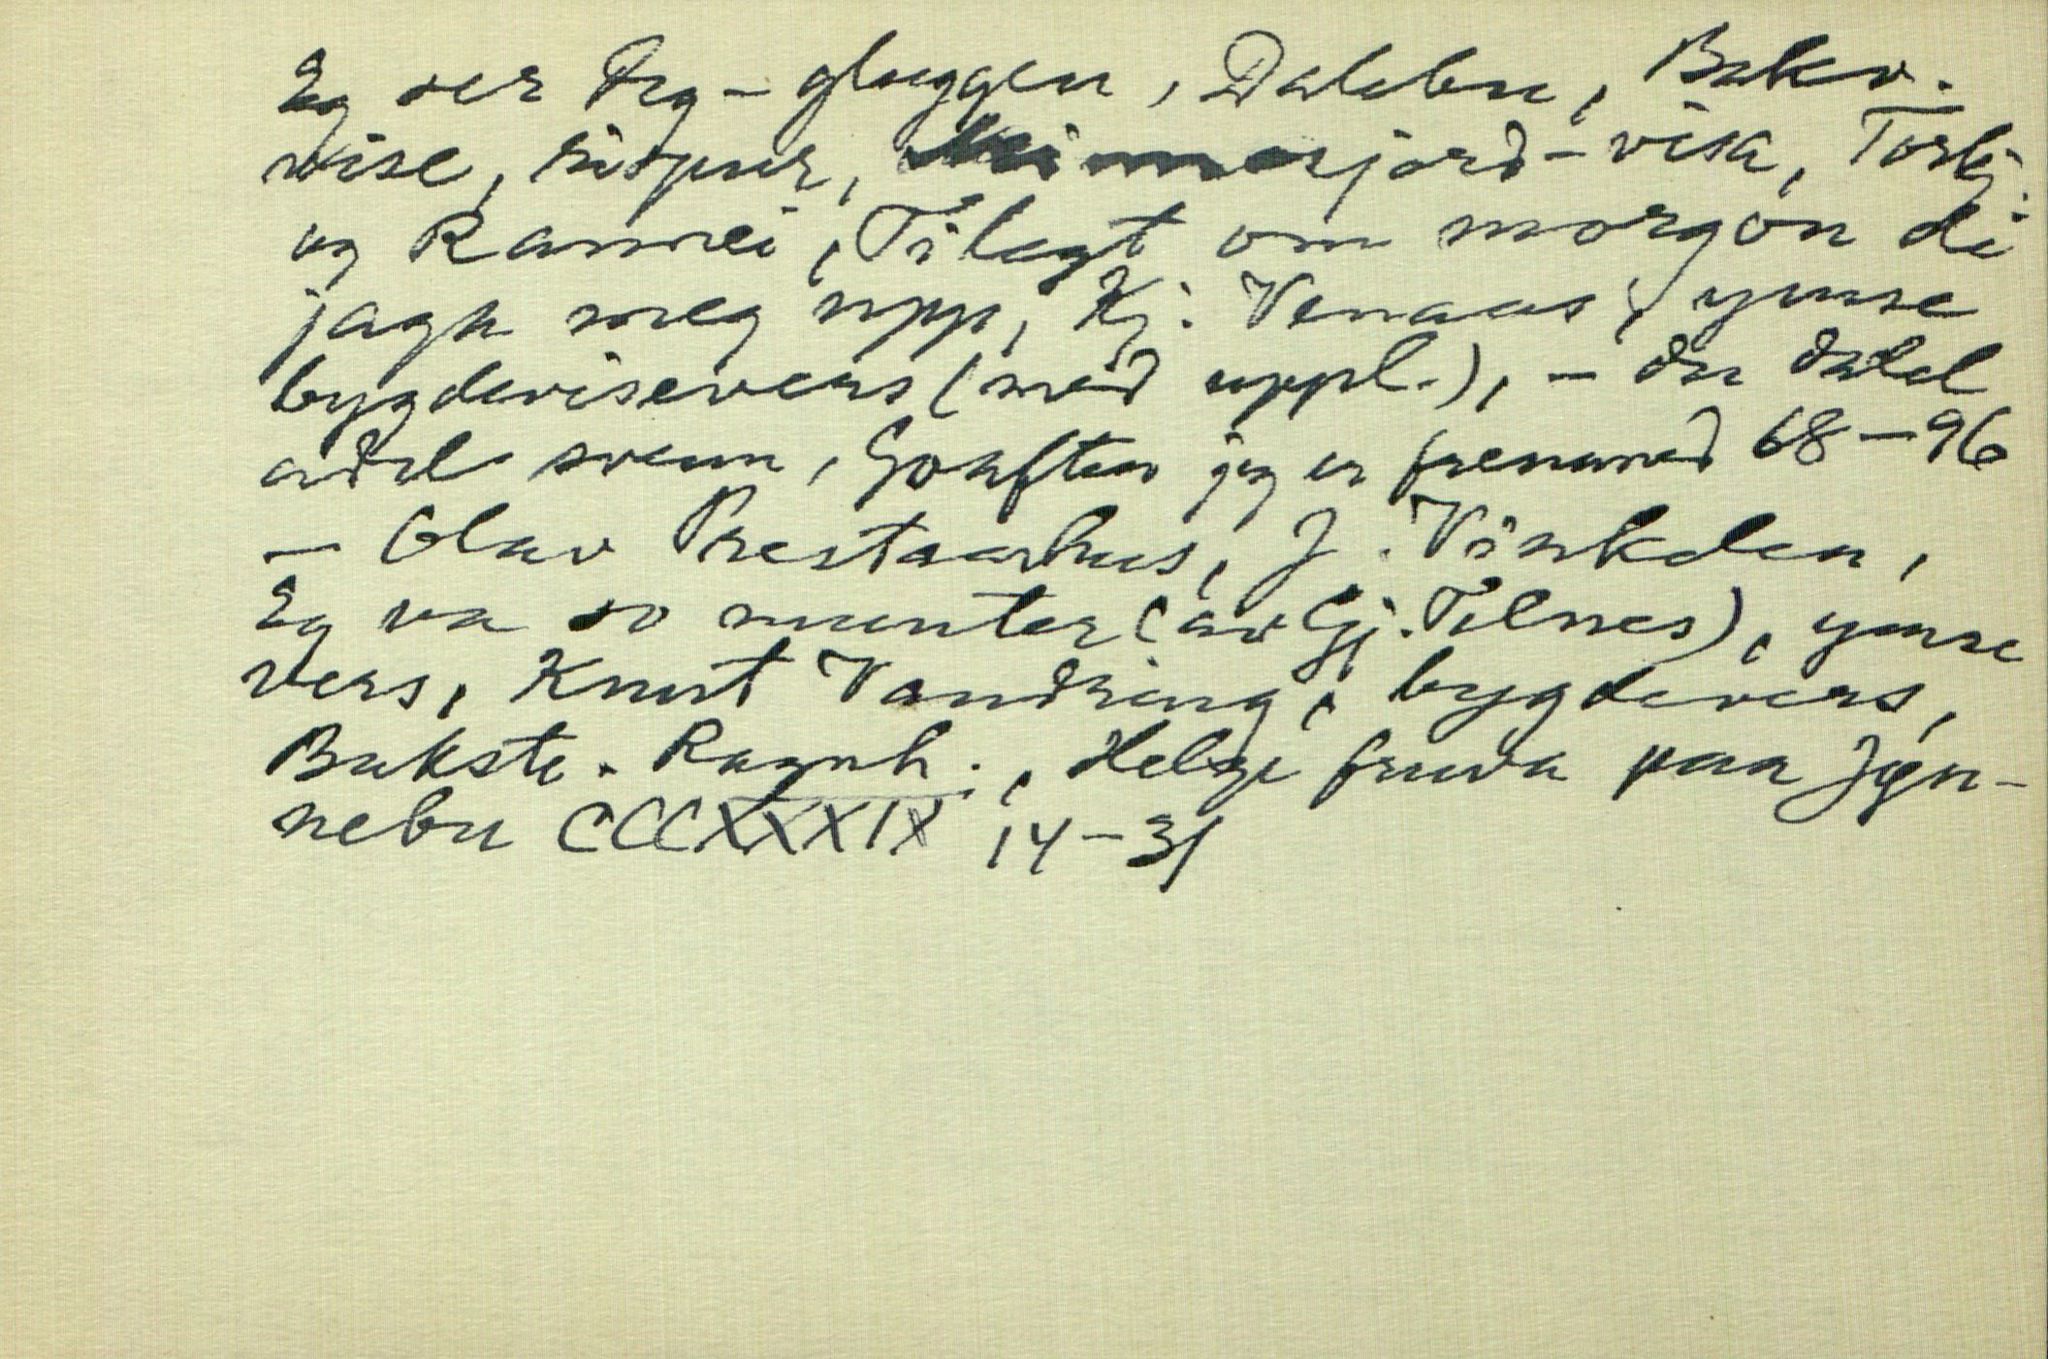 Eg ser deg - gluggen, Dalebu, Bakv.
vise, rispur, Minnerjord-visa, Torbj.
og Rannei, Tilegt om morgon de
jaga meg upp, Kj. Venaas, ymse
bygdevisevers (med uppl.), - du
adel svenn, Godaften jeg er fremmed 68-96
- Olav Prestaarhus, J. Vinkelen,
Eg va so munter (av Gj. Tilnes), ymse
vers, Knut Vandring, bygdevers,
Bakste. Ragnh., Helge fruva paa
nebu CCCXXXIX 14-31